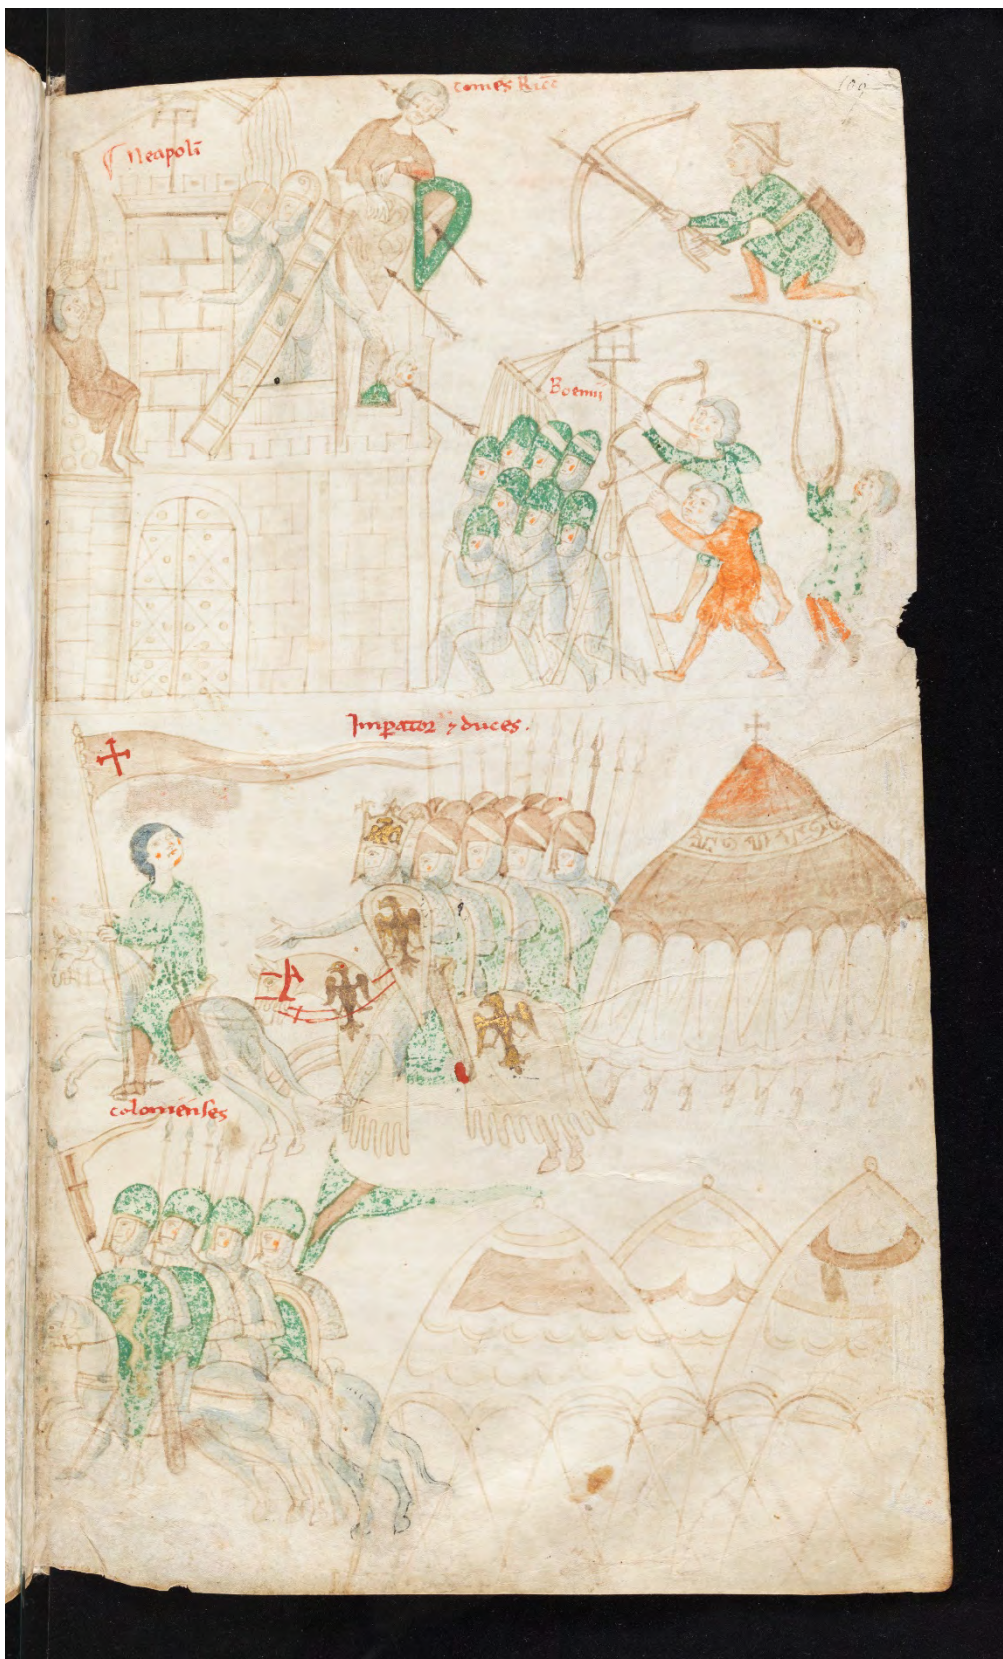 comes Ricc̄
109
Neapol̄i
Boemii
Imp̱ator ⁊ duces.
colonienses